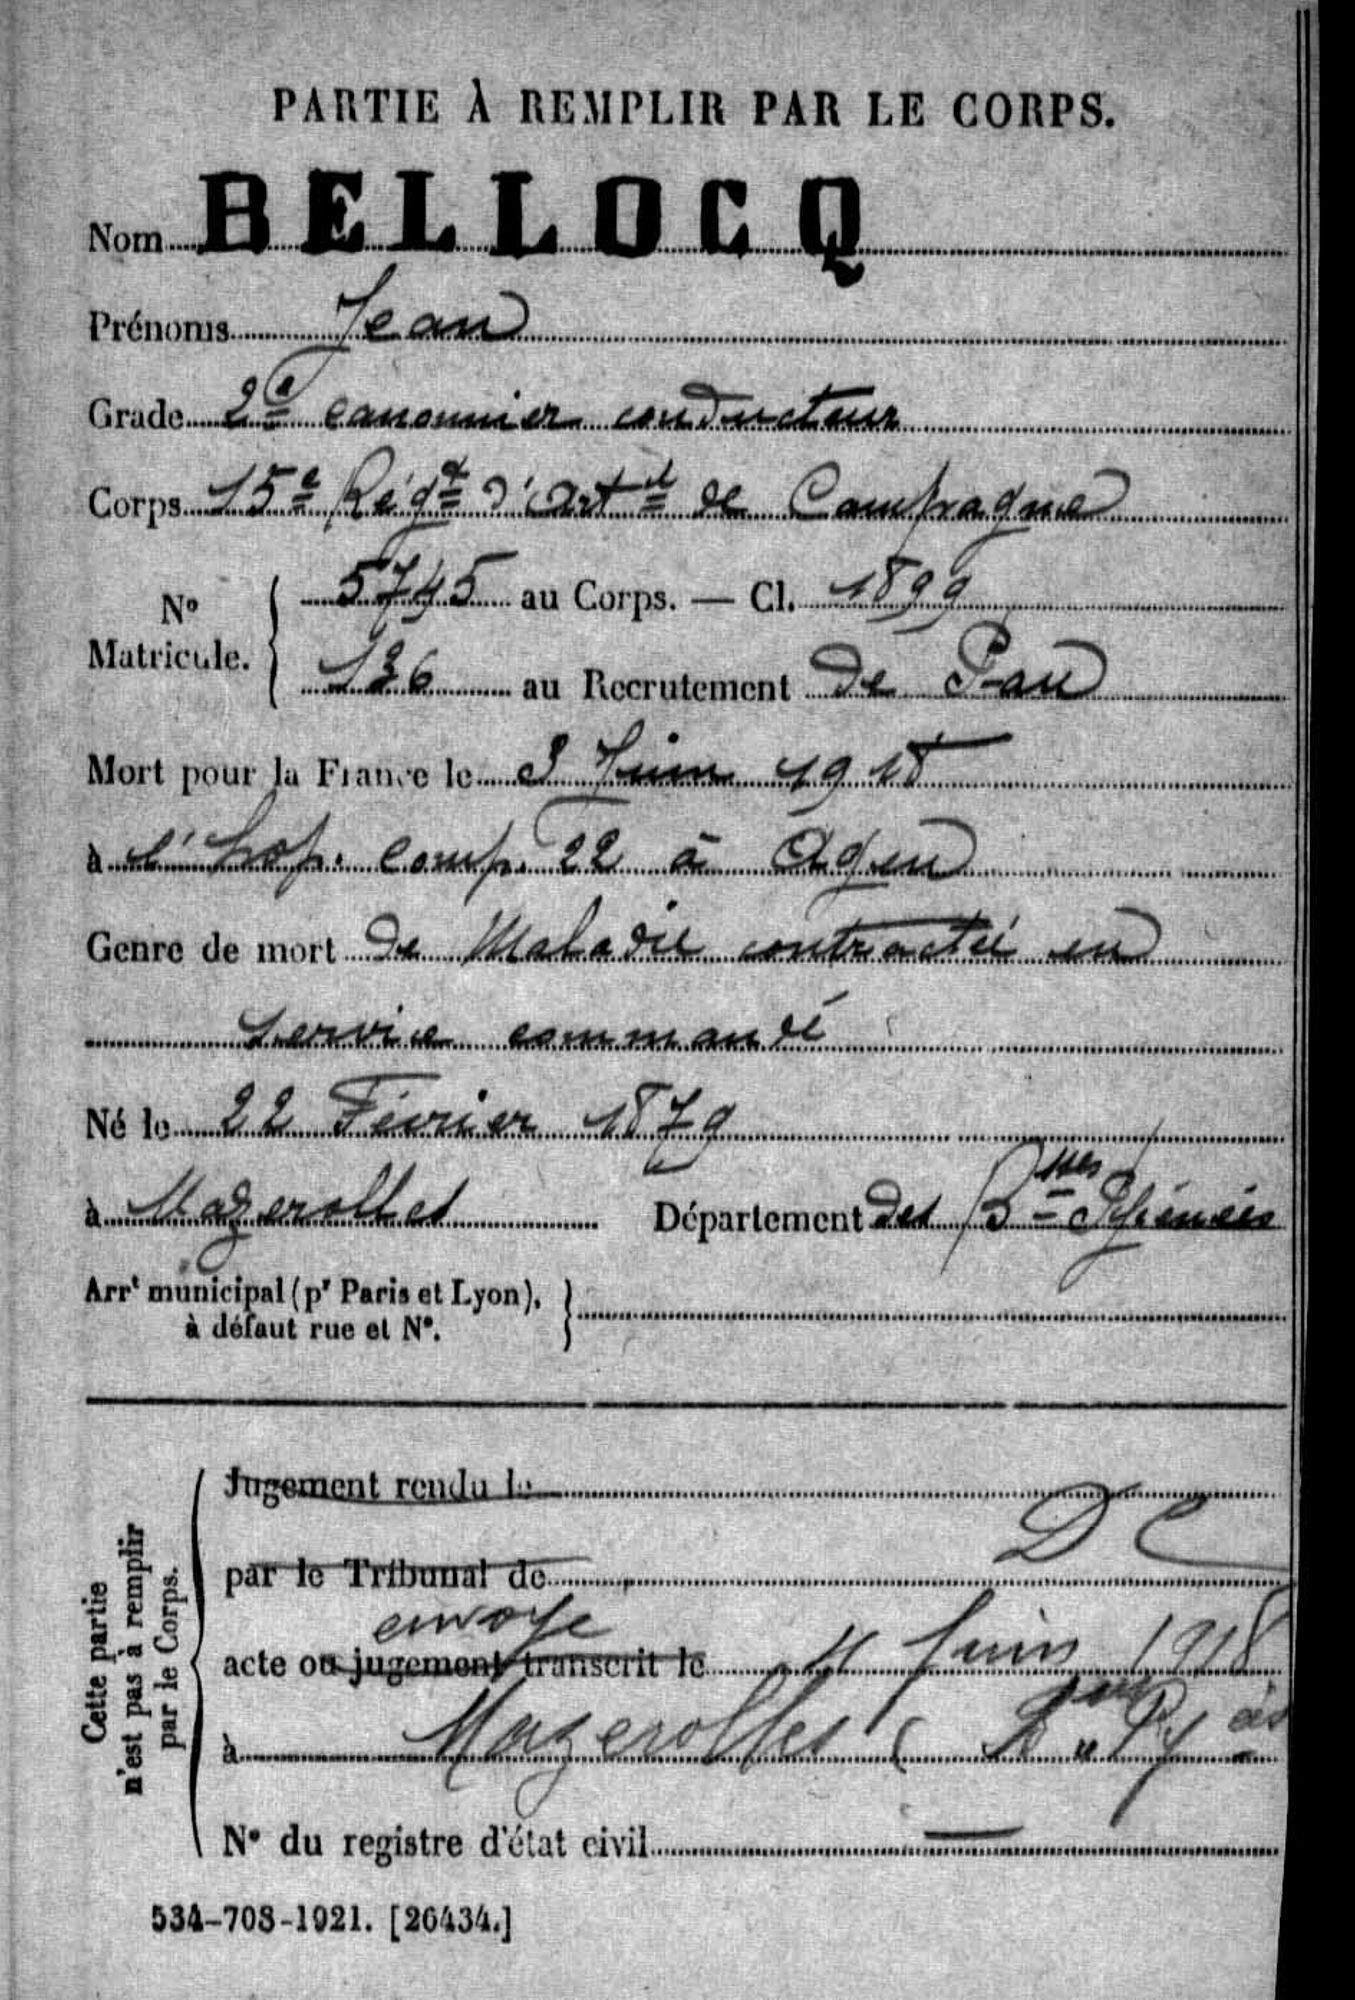 PARTIE À REMPLIR PAR LE CORPS.
Nom BELLOCQ
Prénoms Jean
Grade 2e canonnier conducteur
Corps 15e Régt d'Artie de Campagne
No Matricule. { 5745 au Corps. — Cl. 1899
136 au Recrutement de Pau
Mort pour la France le 3 Juin 1918
à l'hop. comp. 22 à Agen
Genre de mort de Maladie contractée en
service commandé
Né le 22 Février 1879
à Mazerolles Département des Bses Pyrénées
Arrt municipal (pr Paris et Lyon), à défaut rue et No. }
Cette partie n'est pas à remplir par le Corps.
Jugement rendu le
D C
par le Tribunal de
envoyé
acte ou jugement transcrit le 4 Juin 1918
à Mazerolles ( B Py ées
No du registre d'état civil —
534-708-1921. [26434.]